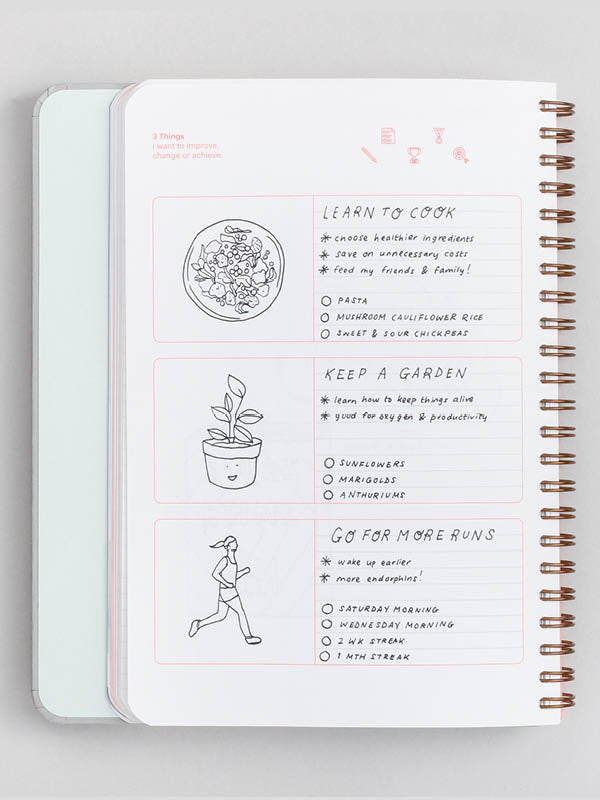 3 Things
i want to improve,
change or achieve.
LEARN TO COOK
* choose healthier ingredients
* save on unnecessary costs
* feed my friends & family!
PASTA
MUSHROOM CAULIFLOWER RICE
SWEET & SOUR CHICKPEAS
KEEP A GARDEN
* learn how to keep things alive
* good for oxygen & productivity
SUNFLOWERS
MARIGOLDS
ANTHURIUMS
GO FOR MORE RUNS
* wake up earlier
* more endorphins!
SATURDAY MORNING
WEDNESDAY MORNING
2 WK STREAK
1 MTH STREAK